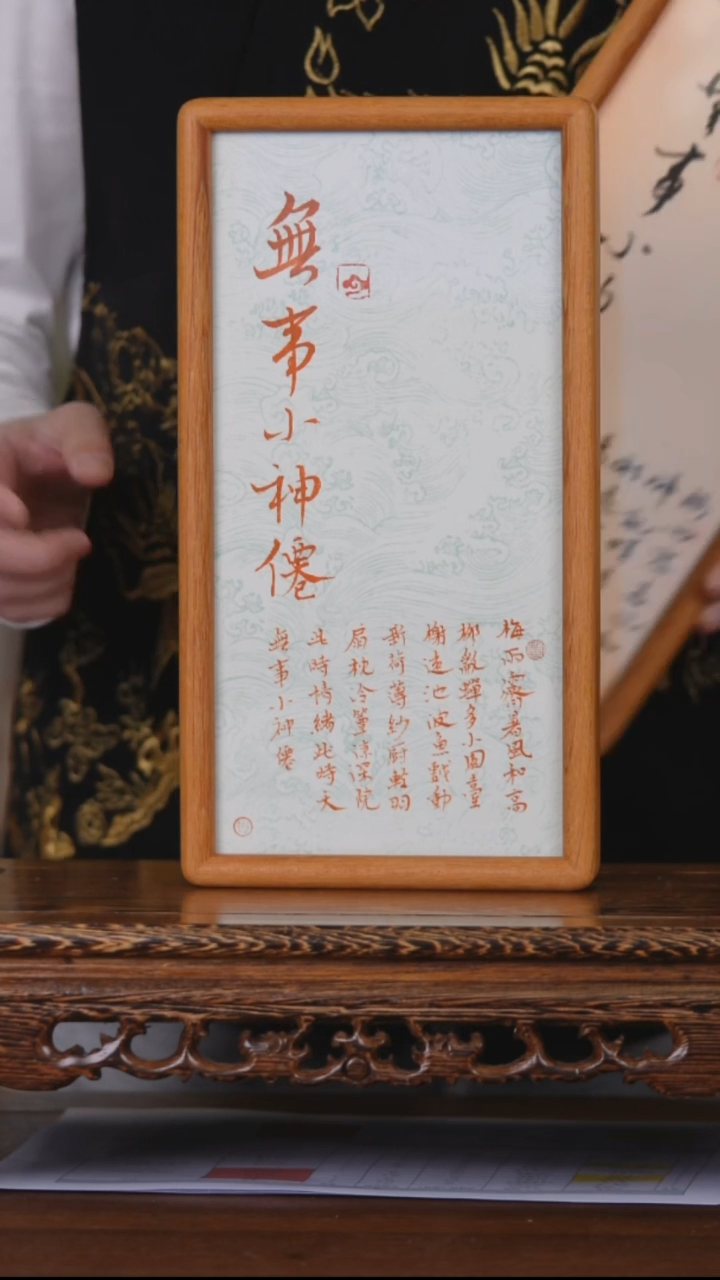 無事小神僊
梅雨霽暑風和高
柳亂蟬多小園臺
榭遠池波魚戲動
新荷薄紗厨輕羽
扇枕冷簟涼深院
此時情緒此時天
無事小神僊
事小